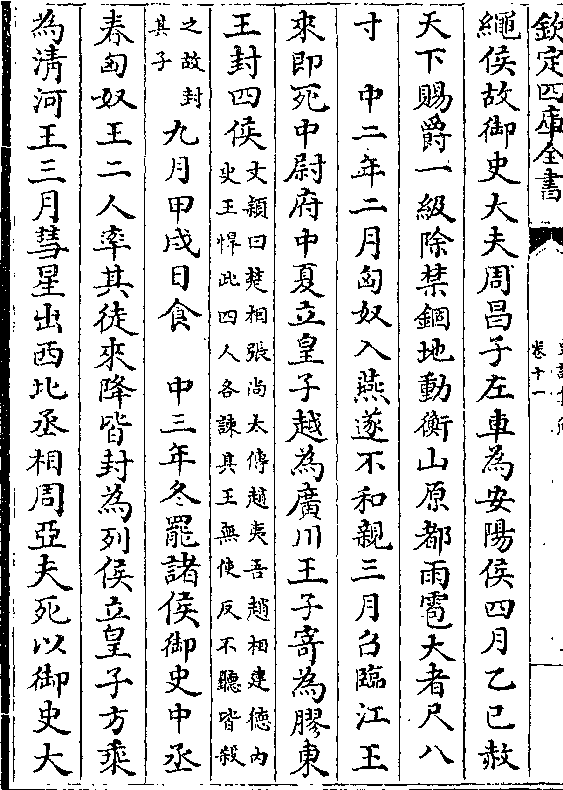 欽定四庫全書
卷十一
繩侯故御史大夫周昌子左車為安陽侯四月乙巳赦
天下賜爵一級除禁錮地動衡山原都雨雹大者尺八
寸　中二年二月匈奴入燕遂不和親三月召臨江王
來即死中尉府中夏立皇子越為廣川王子寄為膠東
王封四侯文穎曰楚相張尚太傅趙夷吾趙相建德內史王悍此四人各諫其王無使反不聽皆殺
之故封其子九月甲戌日食　中三年冬罷諸侯御史中丞
春匈奴王二人率其徒來降皆封為列侯立皇子方乘
為清河王三月彗星出西北丞相周亞夫死以御史大